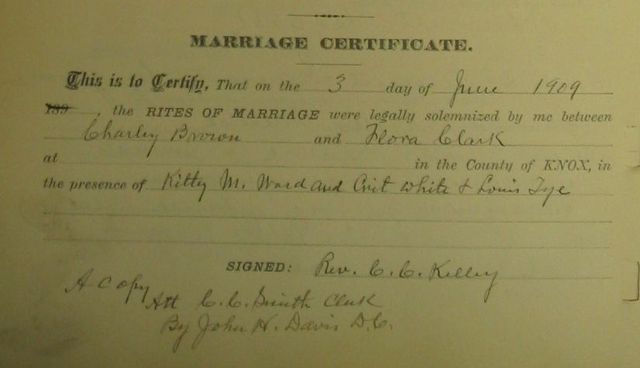 MARRIAGE CERTIFICATE.
This is to Certify, That on the 3 day of June 1909
189 , the RITES OF MARRIAGE were legally solemnized by me between
Charley and Flora Clark
at in the County of KNOX, in
the presence of Kitty M. Ward and Crit White & Louis Tye
SIGNED: Rev. C. C. Kelley
A copy
Att C. C. Smith Clerk
By John H. Davis D.C.